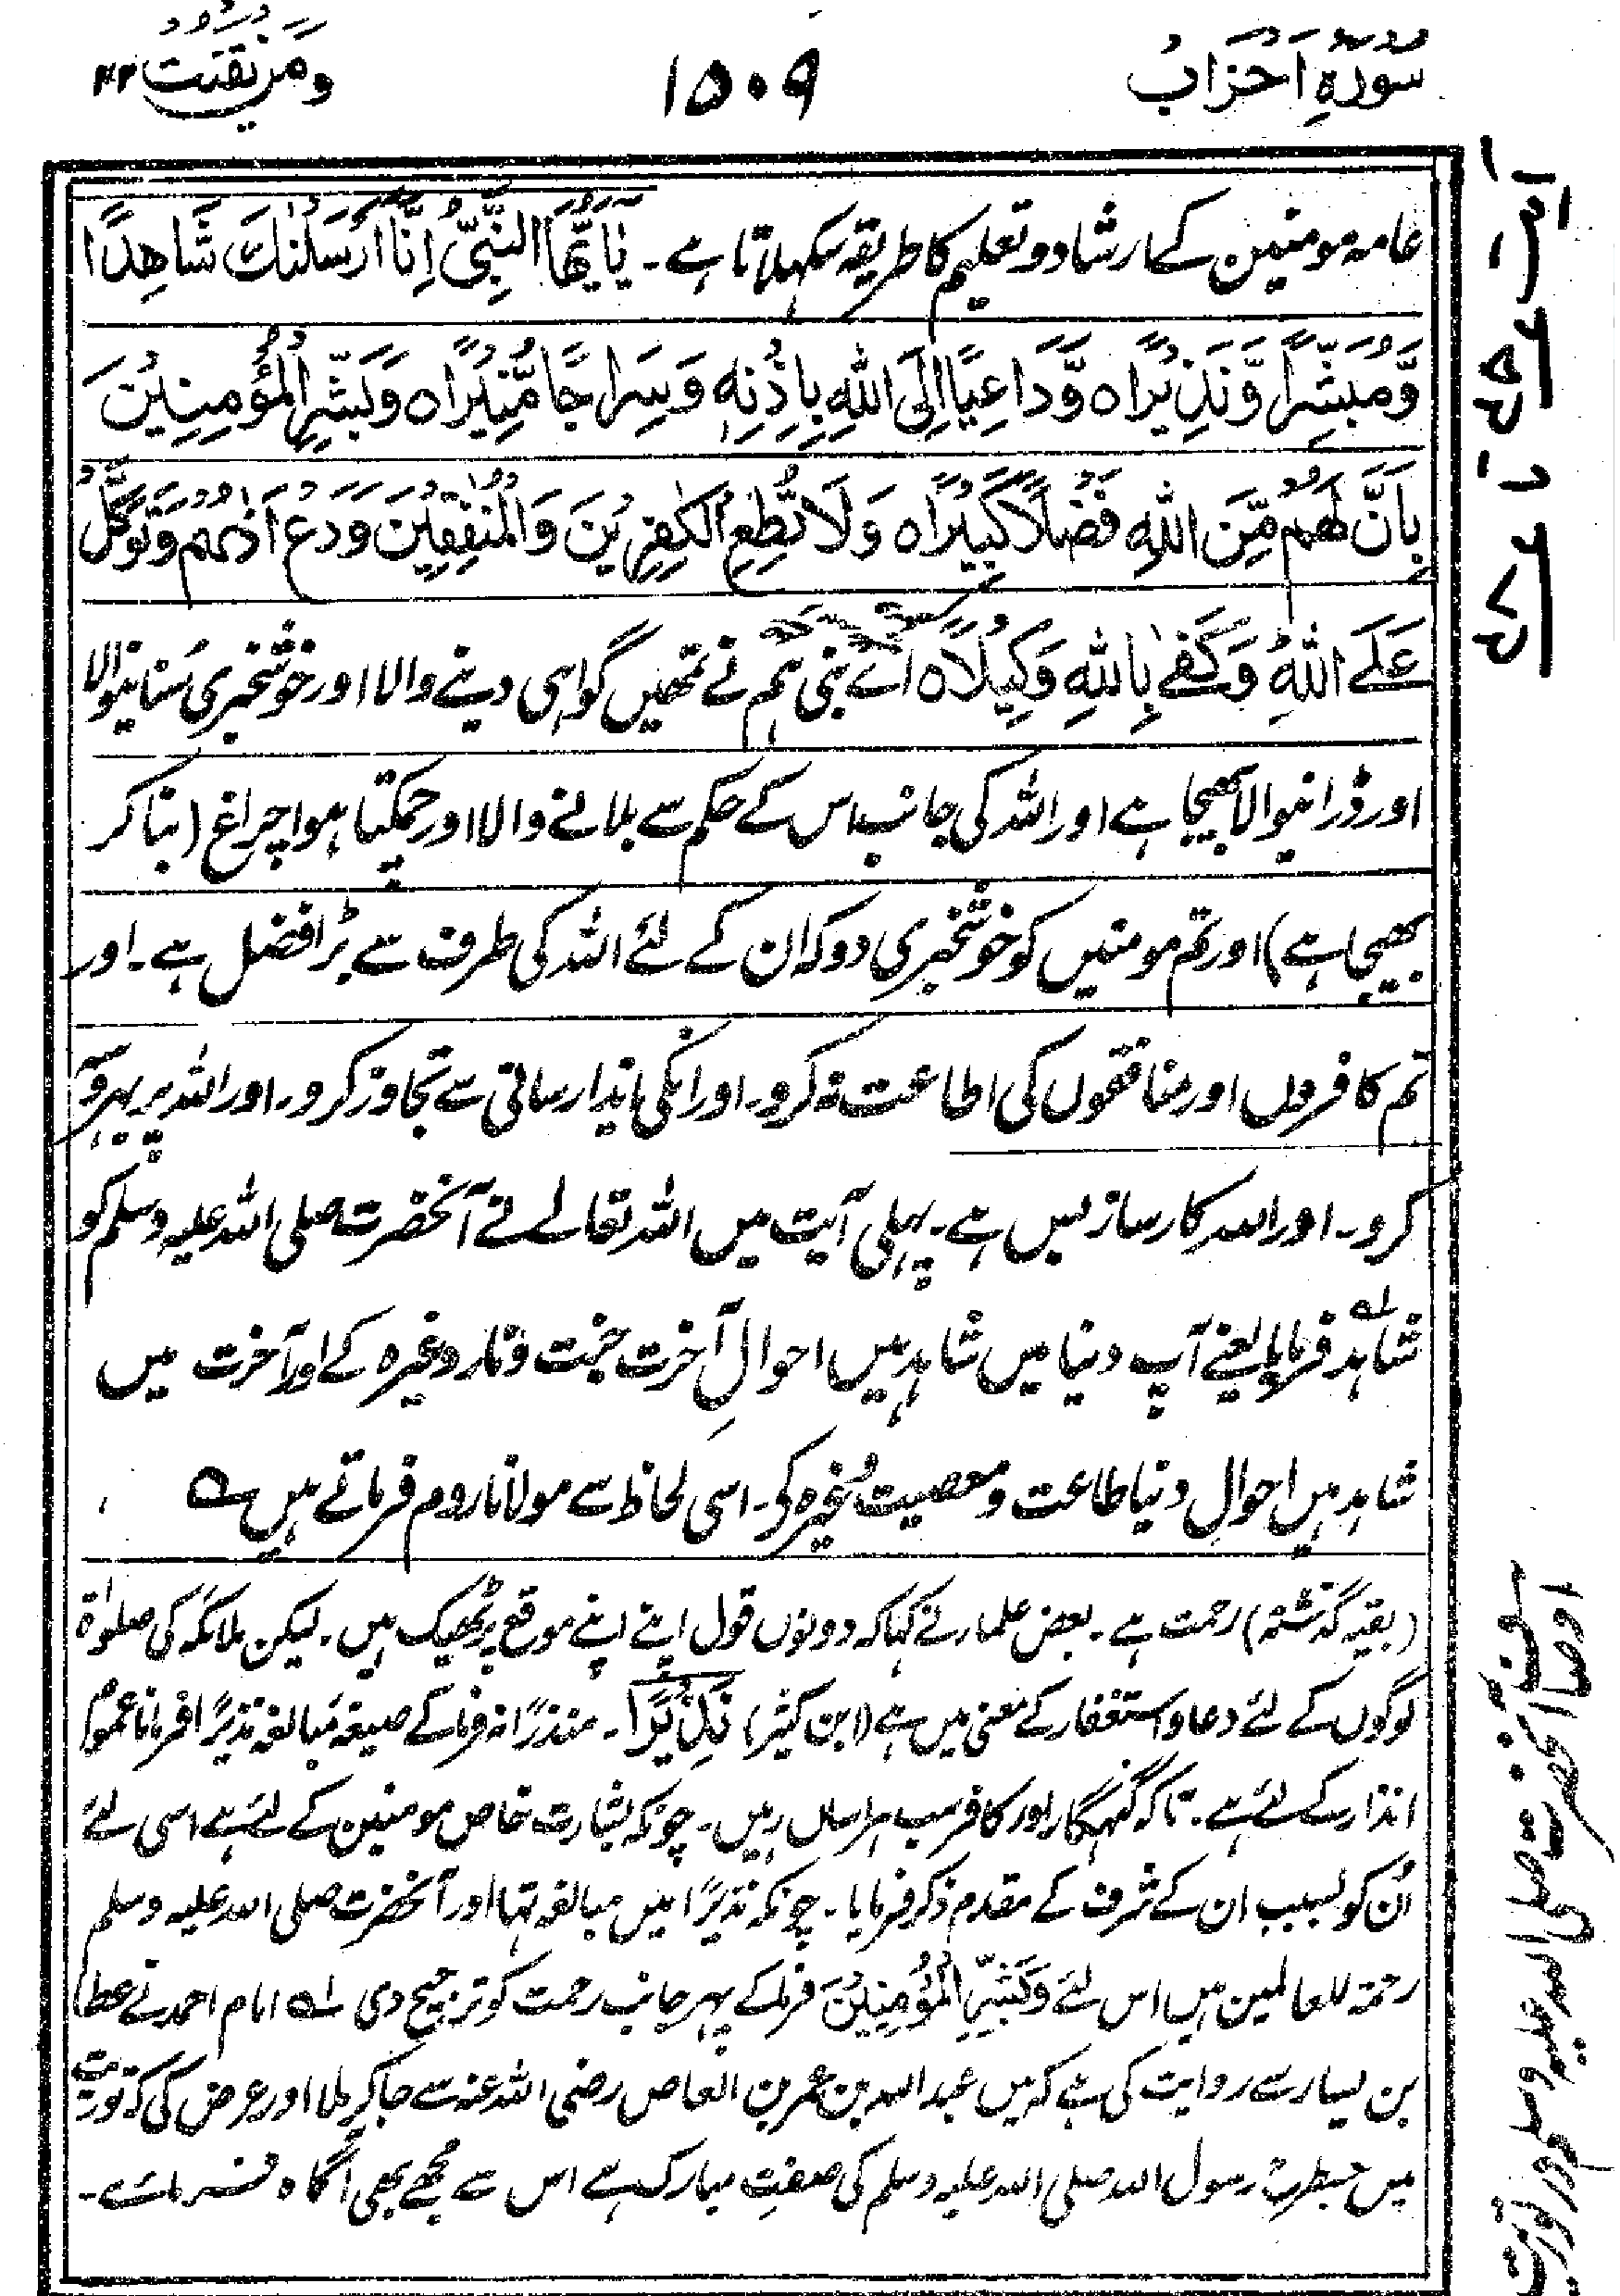 سورہِ احزاب
۱۵۰۹
ومن یقنت ۲۲
عامہ مومنین کے ارشاد و تعلیم کا طریقہ سکہلاتا ہے۔ یٰۤاَیُّهَا النَّبِیُّ اِنَّاۤ اَرْسَلْنٰكَ شَاهِدًا
وَّمُبَشِّرًا وَّنَذِیْرًاہ وَّدَاعِیًا اِلَی اللّٰهِ بِاِذْنِهٖ وَسِرَاجًا مُّنِیْرًاہ وَبَشِّرِ الْمُؤْمِنِیْنَ
بِاَنَّ لَهُمْ مِّنَ اللّٰهِ فَضْلًا كَبِیْرًاہ وَلَا تُطِعِ الْكٰفِرِیْنَ وَالْمُنٰفِقِیْنَ وَدَعْ اَذٰىهُمْ وَتَوَكَّلْ
عَلَے اللّٰهِ وَكَفٰے بِاللّٰهِ وَكِیْلًاہ اے نبی ہم نے تمھیں گواہی دینے والا اور خوشخبری سُنانیوالا
اور ڈرانیوالا بھیجا ہے اور اللہ کی جانب اس کے حکم سے بلانے والا اور چمکتا ہوا چراغ (بنا کر
بھیجا ہے) اور تم مومنیں کو خوشخبری دو کہ ان کے لئے اللہ کی طرف سے بڑا فضل ہے۔ اور
تم کافروں اور منافقوں کی اطاعت نہ کرو۔ اور انکی ایذا رسانی سے تجاوز کرو۔ اور اللہ پر بہروسہ
کرو۔ اور اللہ کارساز بس ہے۔ پہلی آیت میں اللہ تعالےٰ نے آنحضرت صلی اللہ علیہ وسلم کو
شاہد فرمایا یعنے آپ دنیا میں شاہد ہیں احوالِ آخرت جنت و نار وغیرہ کے اور آخرت میں
شاہد ہیں احوالِ دنیا طاعت و معصیت وغیرہ کے۔ اسی لحاظ سے مولانا روم فرماتے ہیں ؎
(بقیہ گذشتہ) رحمت ہے۔ بعض علمار نے کہا کہ دونوں قول اپنے اپنے موقع پر ٹھیک ہیں۔ لیکن ملائکہ کی صلوٰۃ
لوگوں کے لئے دعا و استغفار کے معنی میں ہے (ابن کثیر) نَذِیْرًا۔ منذرًا نہ فرما کے صیغہ مُبالغہ نذیرًا فرمانا عمومِ
انذار کے لئے ہے۔ تاکہ گنہگار اور کافر سب ہراساں رہیں۔ چونکہ بشارت خاص مومنین کے لئے ہے اسی لئے
اُن کو بسبب ان کے شرف کے مقدم ذکر فرمایا۔ چونکہ نذیرًا میں مبالغہ تہا اور آنحضرت صلی اللہ علیہ وسلم
رحمۃ للعالمین ہیں اس لئے وَبَشِّرِ الْمُؤْمِنِیْنَ فرما کے پہر جانب رحمت کو ترجیح دی ؎۱ امام احمد نے عطا
بن یسار سے روایت کی ہے کہ میں عبداللہ بن عمر بن العاص رضی اللہ عنہ سے جا کر ملا اور عرض کی کہ توریت
میں جسطرح رسول اللہ صلی اللہ علیہ وسلم کی صفتِ مبارک ہے اس سے مجھے بھی آگاہ فرمائے۔